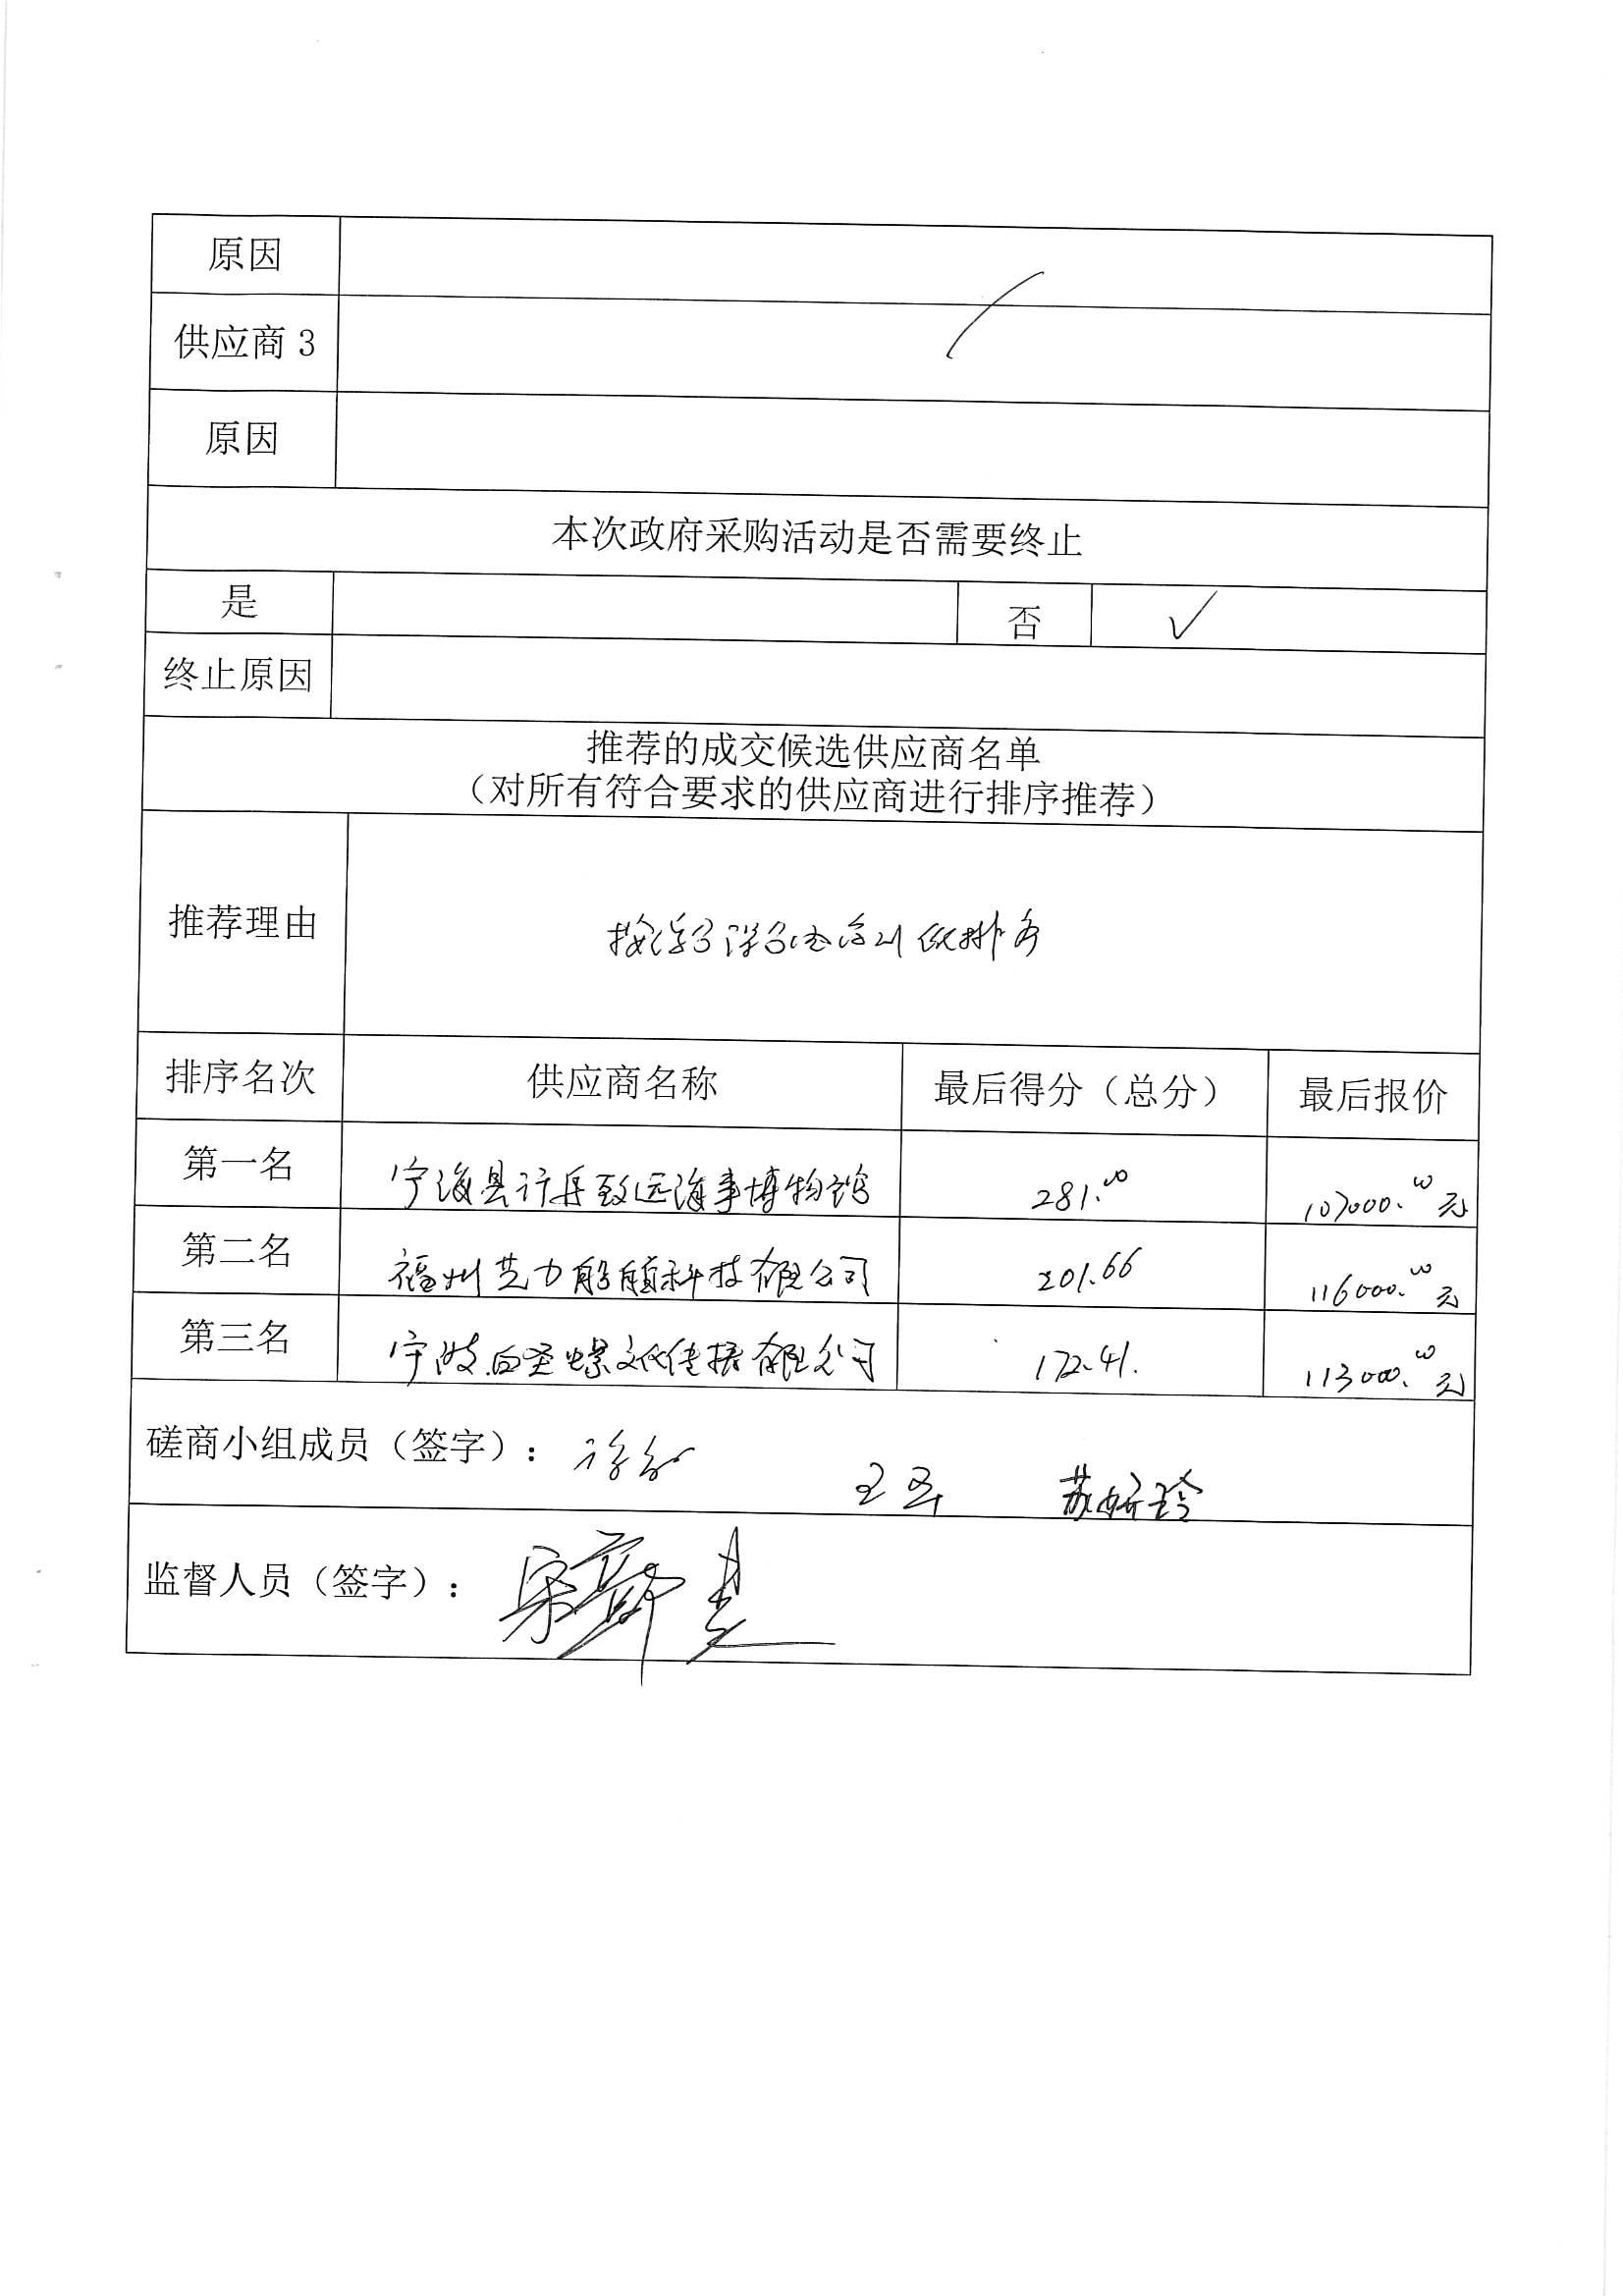 原因
供应商 3
原因
本次政府采购活动是否需要终止
是 否 √
终止原因
推荐的成交候选供应商名单
（对所有符合要求的供应商进行排序推荐）
推荐理由 按综合得分由高到低排名
排序名次 供应商名称 最后得分（总分） 最后报价
第一名 宁海县许岙致远海事博物馆 281.00 107000.00元
第二名 福州艺力船舶科技有限公司 201.66 116000.00元
第三名 宁波白圣螺文化传播有限公司 172.41. 113000.00元
磋商小组成员（签字）： 苏妍玲
监督人员（签字）：